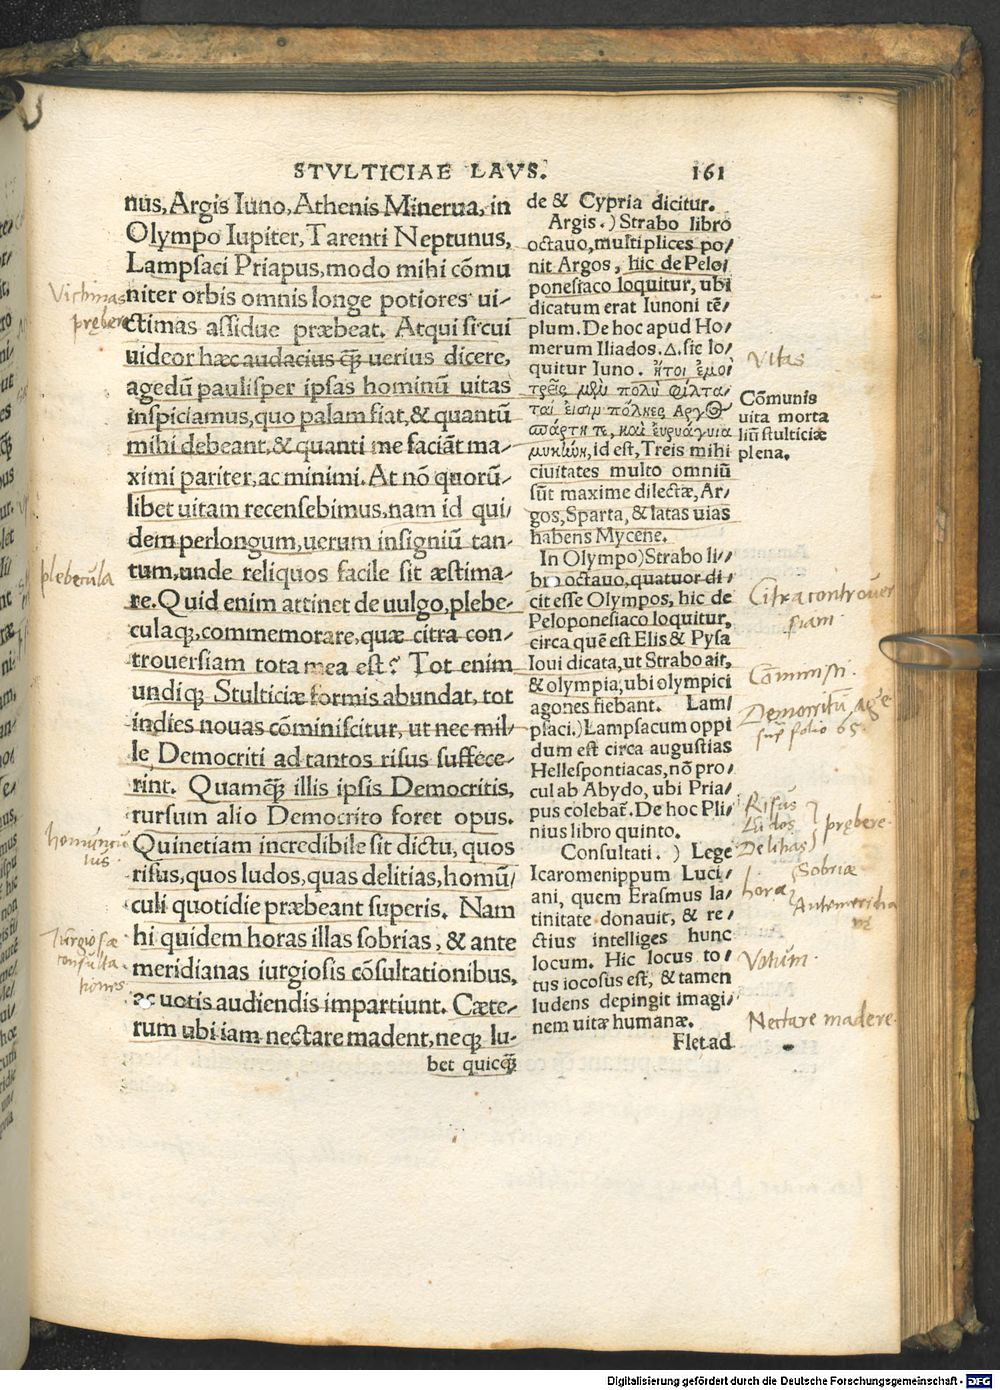 STVLTICIAE LAVS. 161
nus, Argis Iuno, Athenis Minerua, in
Olympo Iupiter, Tarenti Neptunus,
Lampsaci Priapus, modo mihi cōmu
niter orbis omnis longe potiores ui-
ctimas assidue præbeat. Atqui si cui
uideor hæc audacius q̃ uerius dicere,
agedū paulisper ipsas hominū uitas
inspiciamus, quo palam fiat, & quantū
mihi debeant, & quanti me faciāt ma-
ximi pariter, ac minimi. At nō quorū-
libet uitam recensebimus, nam id qui-
dem perlongum, uerum insigniū tan-
tum, unde reliquos facile sit æstima-
re. Quid enim attinet de uulgo, plebe-
culaq;, commemorare, quæ citra con-
trouersiam tota mea est? Tot enim
undiq; Stulticiæ formis abundat, tot
indies nouas cōminiscitur, ut nec mil-
le Democriti ad tantos risus suffece-
rint. Quamq̃ illis ipsis Democritis,
rursum alio Democrito foret opus.
Quinetiam incredibile sit dictu, quos
risus, quos ludos, quas delitias, homū/
culi quotidie præbeant superis. Nam
hi quidem horas illas sobrias, & ante
meridianas iurgiosis cōsultationibus,
ac uotis audiendis impartiunt. Cæte-
rum ubi iam nectare madent, neq; lu-
bet quicq̃
de & Cypria dicitur.
Argis.) Strabo libro
octauo, multiplices po/
nit Argos, hic de Pelo/
ponesiaco loquitur, ubi
dicatum erat Iunoni tē/
plum. De hoc apud Ho/
merum Iliados. Δ. sic lo/
quitur Iuno. ἤτοι ἐμοὶ
τρεῖς μὲν πολὺ φίλτα/
ται εἰσιμ πόληες Αργος
σπάρτη τε, καὶ ἐυρυάγυια
μυκήνη, id est, Treis mihi
ciuitates multo omniū
sūt maxime dilectæ, Ar/
gos, Sparta, & latas uias
habens Mycene.
In Olympo) Strabo li/
bro octauo, quatuor di/
cit esse Olympos, hic de
Peloponesiaco loquitur,
circa quē est Elis & Pysa
Ioui dicata, ut Strabo ait,
& olympia, ubi olympici
agones fiebant. Lam/
psaci.) Lampsacum oppi
dum est circa augustias
Hellespontiacas, nō pro/
cul ab Abydo, ubi Pria/
pus colebat̄. De hoc Pli/
nius libro quinto.
Consultati.) Lege
Icaromenippum Luci/
ani, quem Erasmus la/
tinitate donauit, & re/
ctius intelliges hunc
locum. Hic locus to/
tus iocosus est, & tamen
ludens depingit imagi/
nem uitæ humanæ.
Flet ad
Cōmunis
uita morta
liū stulticiæ
plena.
Victimas
prębere
plebecula
homuncu
lus.
Iurgiosæ
consulta
tiones
Vitas
Citra controuer
siam.
Cōminisci.
Democritū age
sup folio 65.
Risus
Ludos
Delitias
prębere.
hora
Sobriæ
Antemeridia
Votum.
Nectare madere.
Digitalisierung gefördert durch die Deutsche Forschungsgemeinschaft - DFG